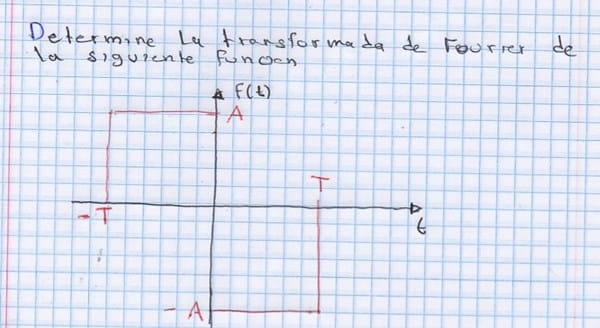 Determine La transformada de Fourier de
la siguiente funcion
f(t)
A
T
-T
t
-A